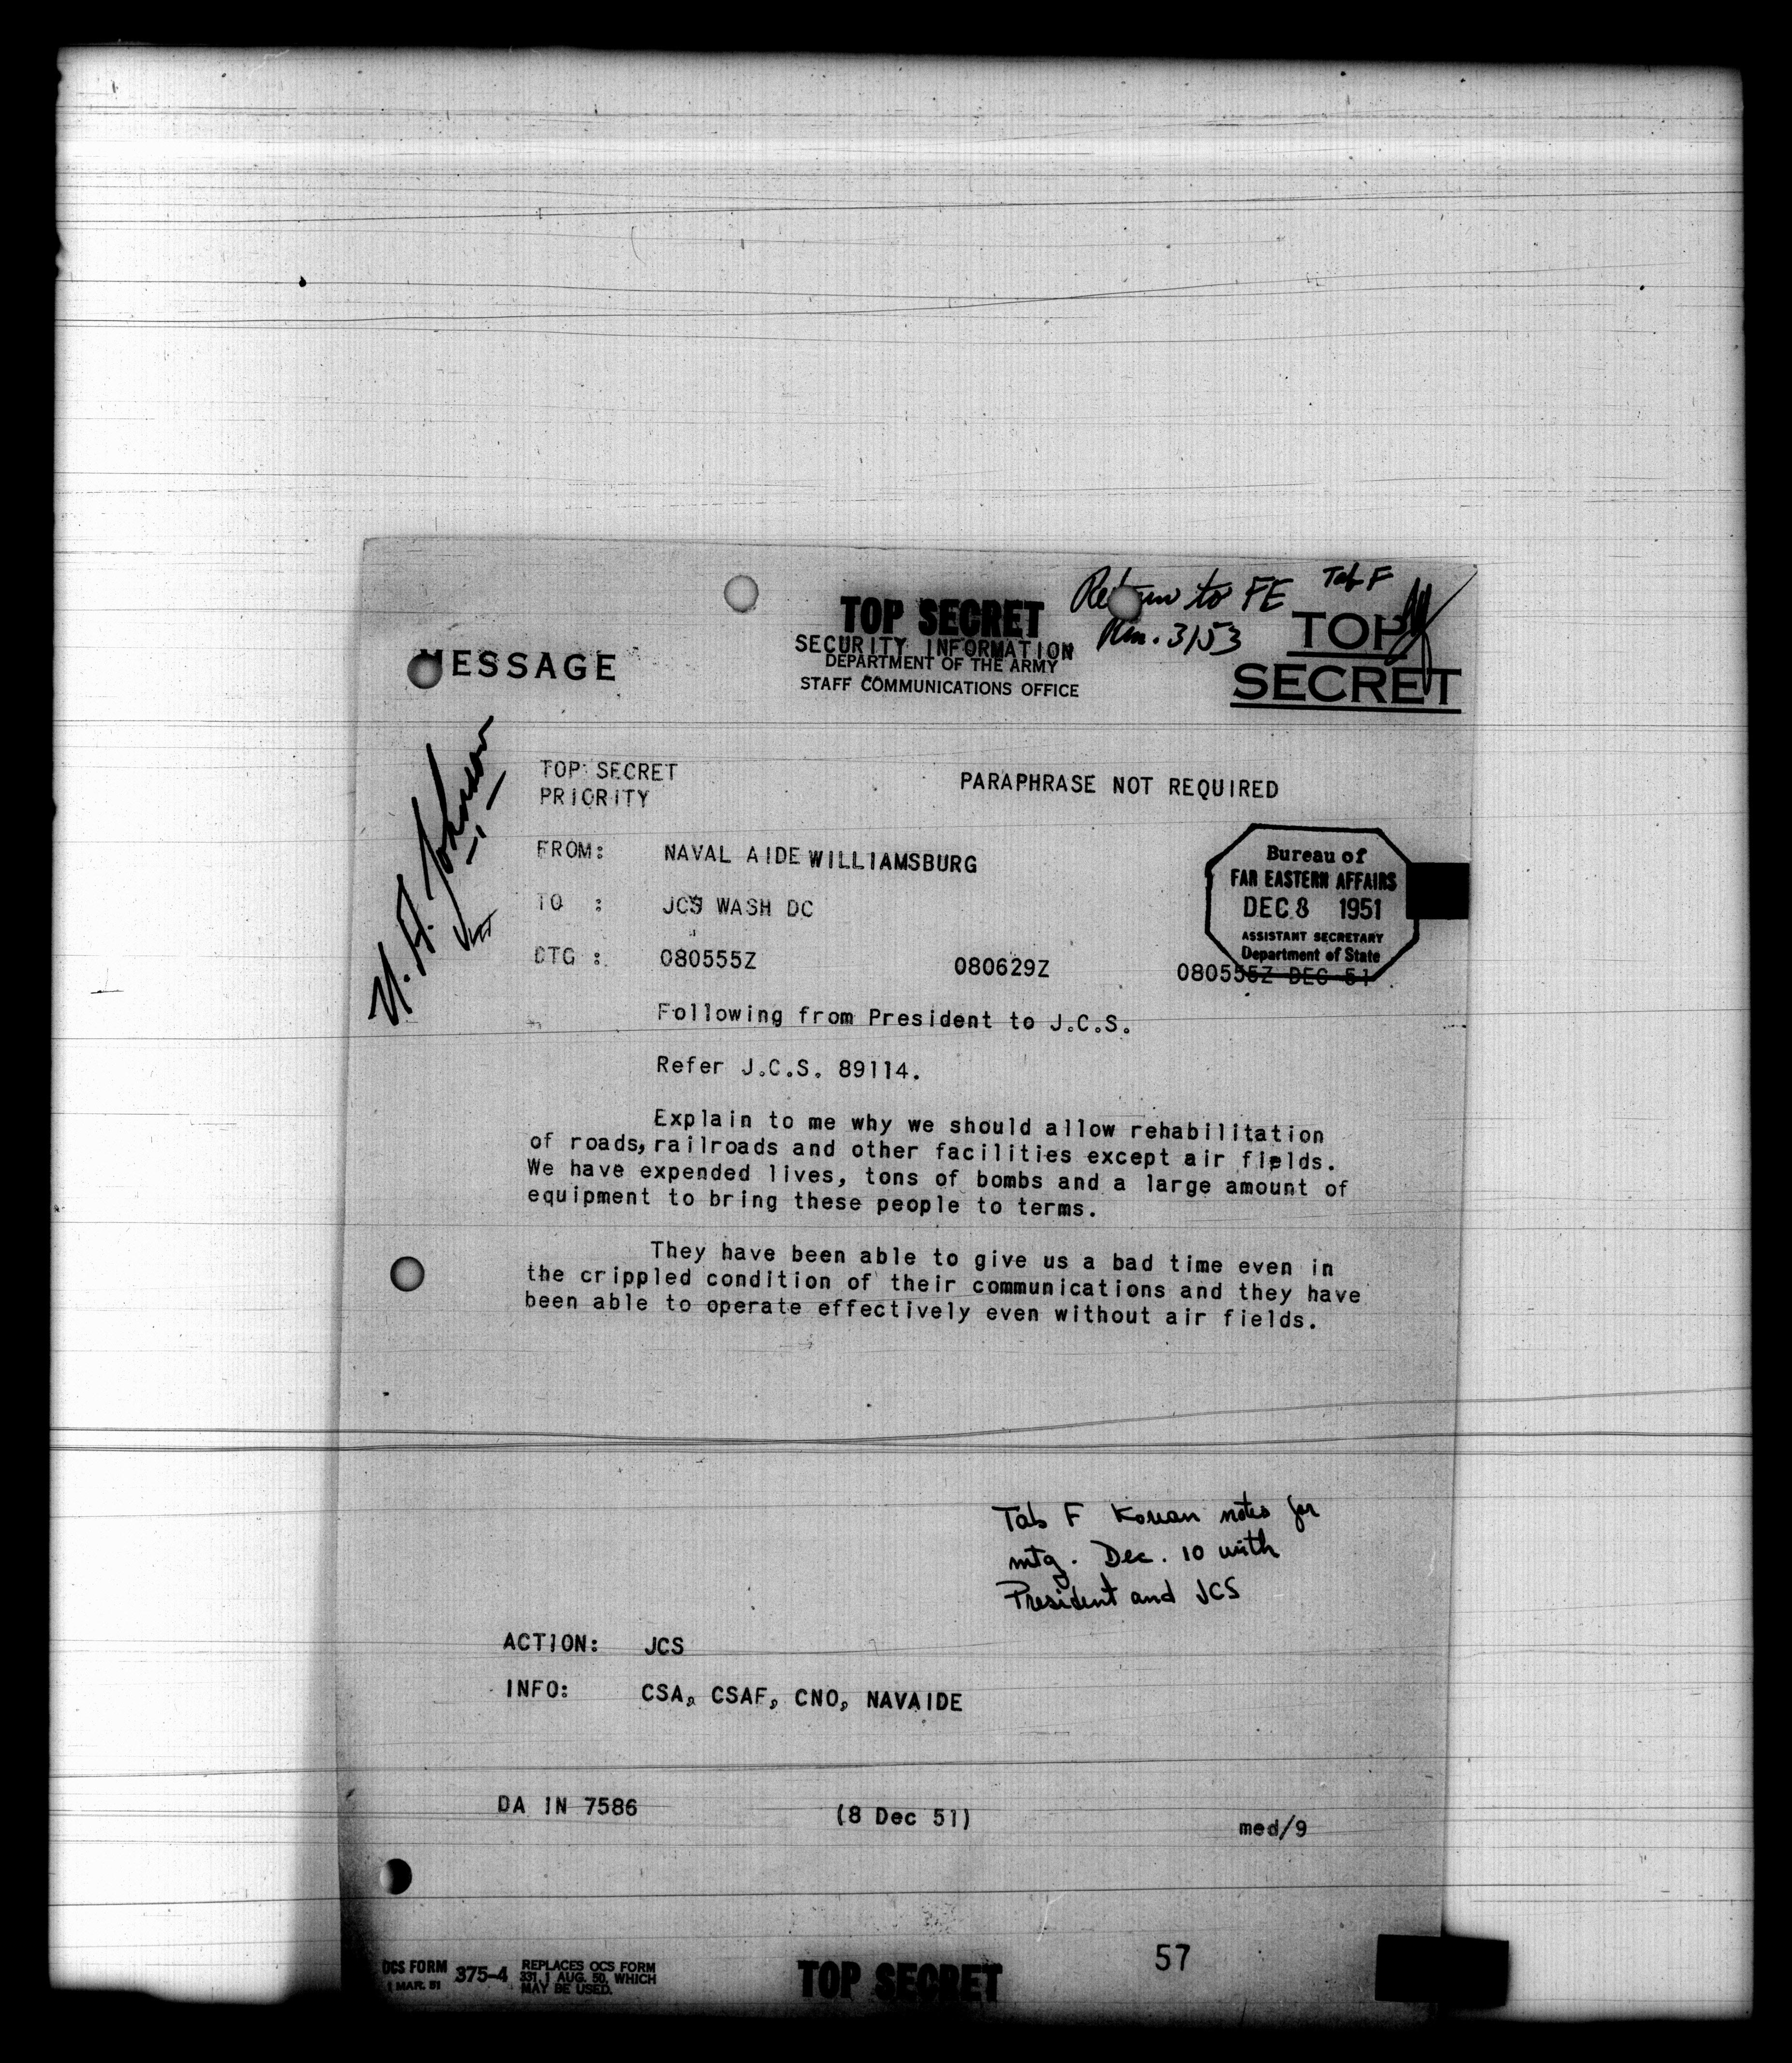 Return to FE Tab F
Rm. 3153
TOP SECRET
SECURITY INFORMATION
DEPARTMENT OF THE ARMY
STAFF COMMUNICATIONS OFFICE
MESSAGE
TOP
SECRET
U. A. Johnson
TOP SECRET
PRIORITY
PARAPHRASE NOT REQUIRED
FROM: NAVAL AIDE WILLIAMSBURG
TO : JCS WASH DC
DTG : 080555Z 080629Z 080555Z DEC 51
Bureau of
FAR EASTERN AFFAIRS
DEC 8 1951
ASSISTANT SECRETARY
Department of State
Following from President to J.C.S.
Refer J.C.S. 89114.
Explain to me why we should allow rehabilitation
of roads, railroads and other facilities except air fields.
We have expended lives, tons of bombs and a large amount of
equipment to bring these people to terms.
They have been able to give us a bad time even in
the crippled condition of their communications and they have
been able to operate effectively even without air fields.
Tab F Korean notes for
mtg. Dec. 10 with
President and JCS
ACTION: JCS
INFO: CSA, CSAF, CNO, NAVAIDE
DA IN 7586 (8 Dec 51) med/9
OCS FORM 375-4 REPLACES OCS FORM
1 MAR. 51 331, 1 AUG. 50, WHICH
MAY BE USED.
TOP SECRET
57